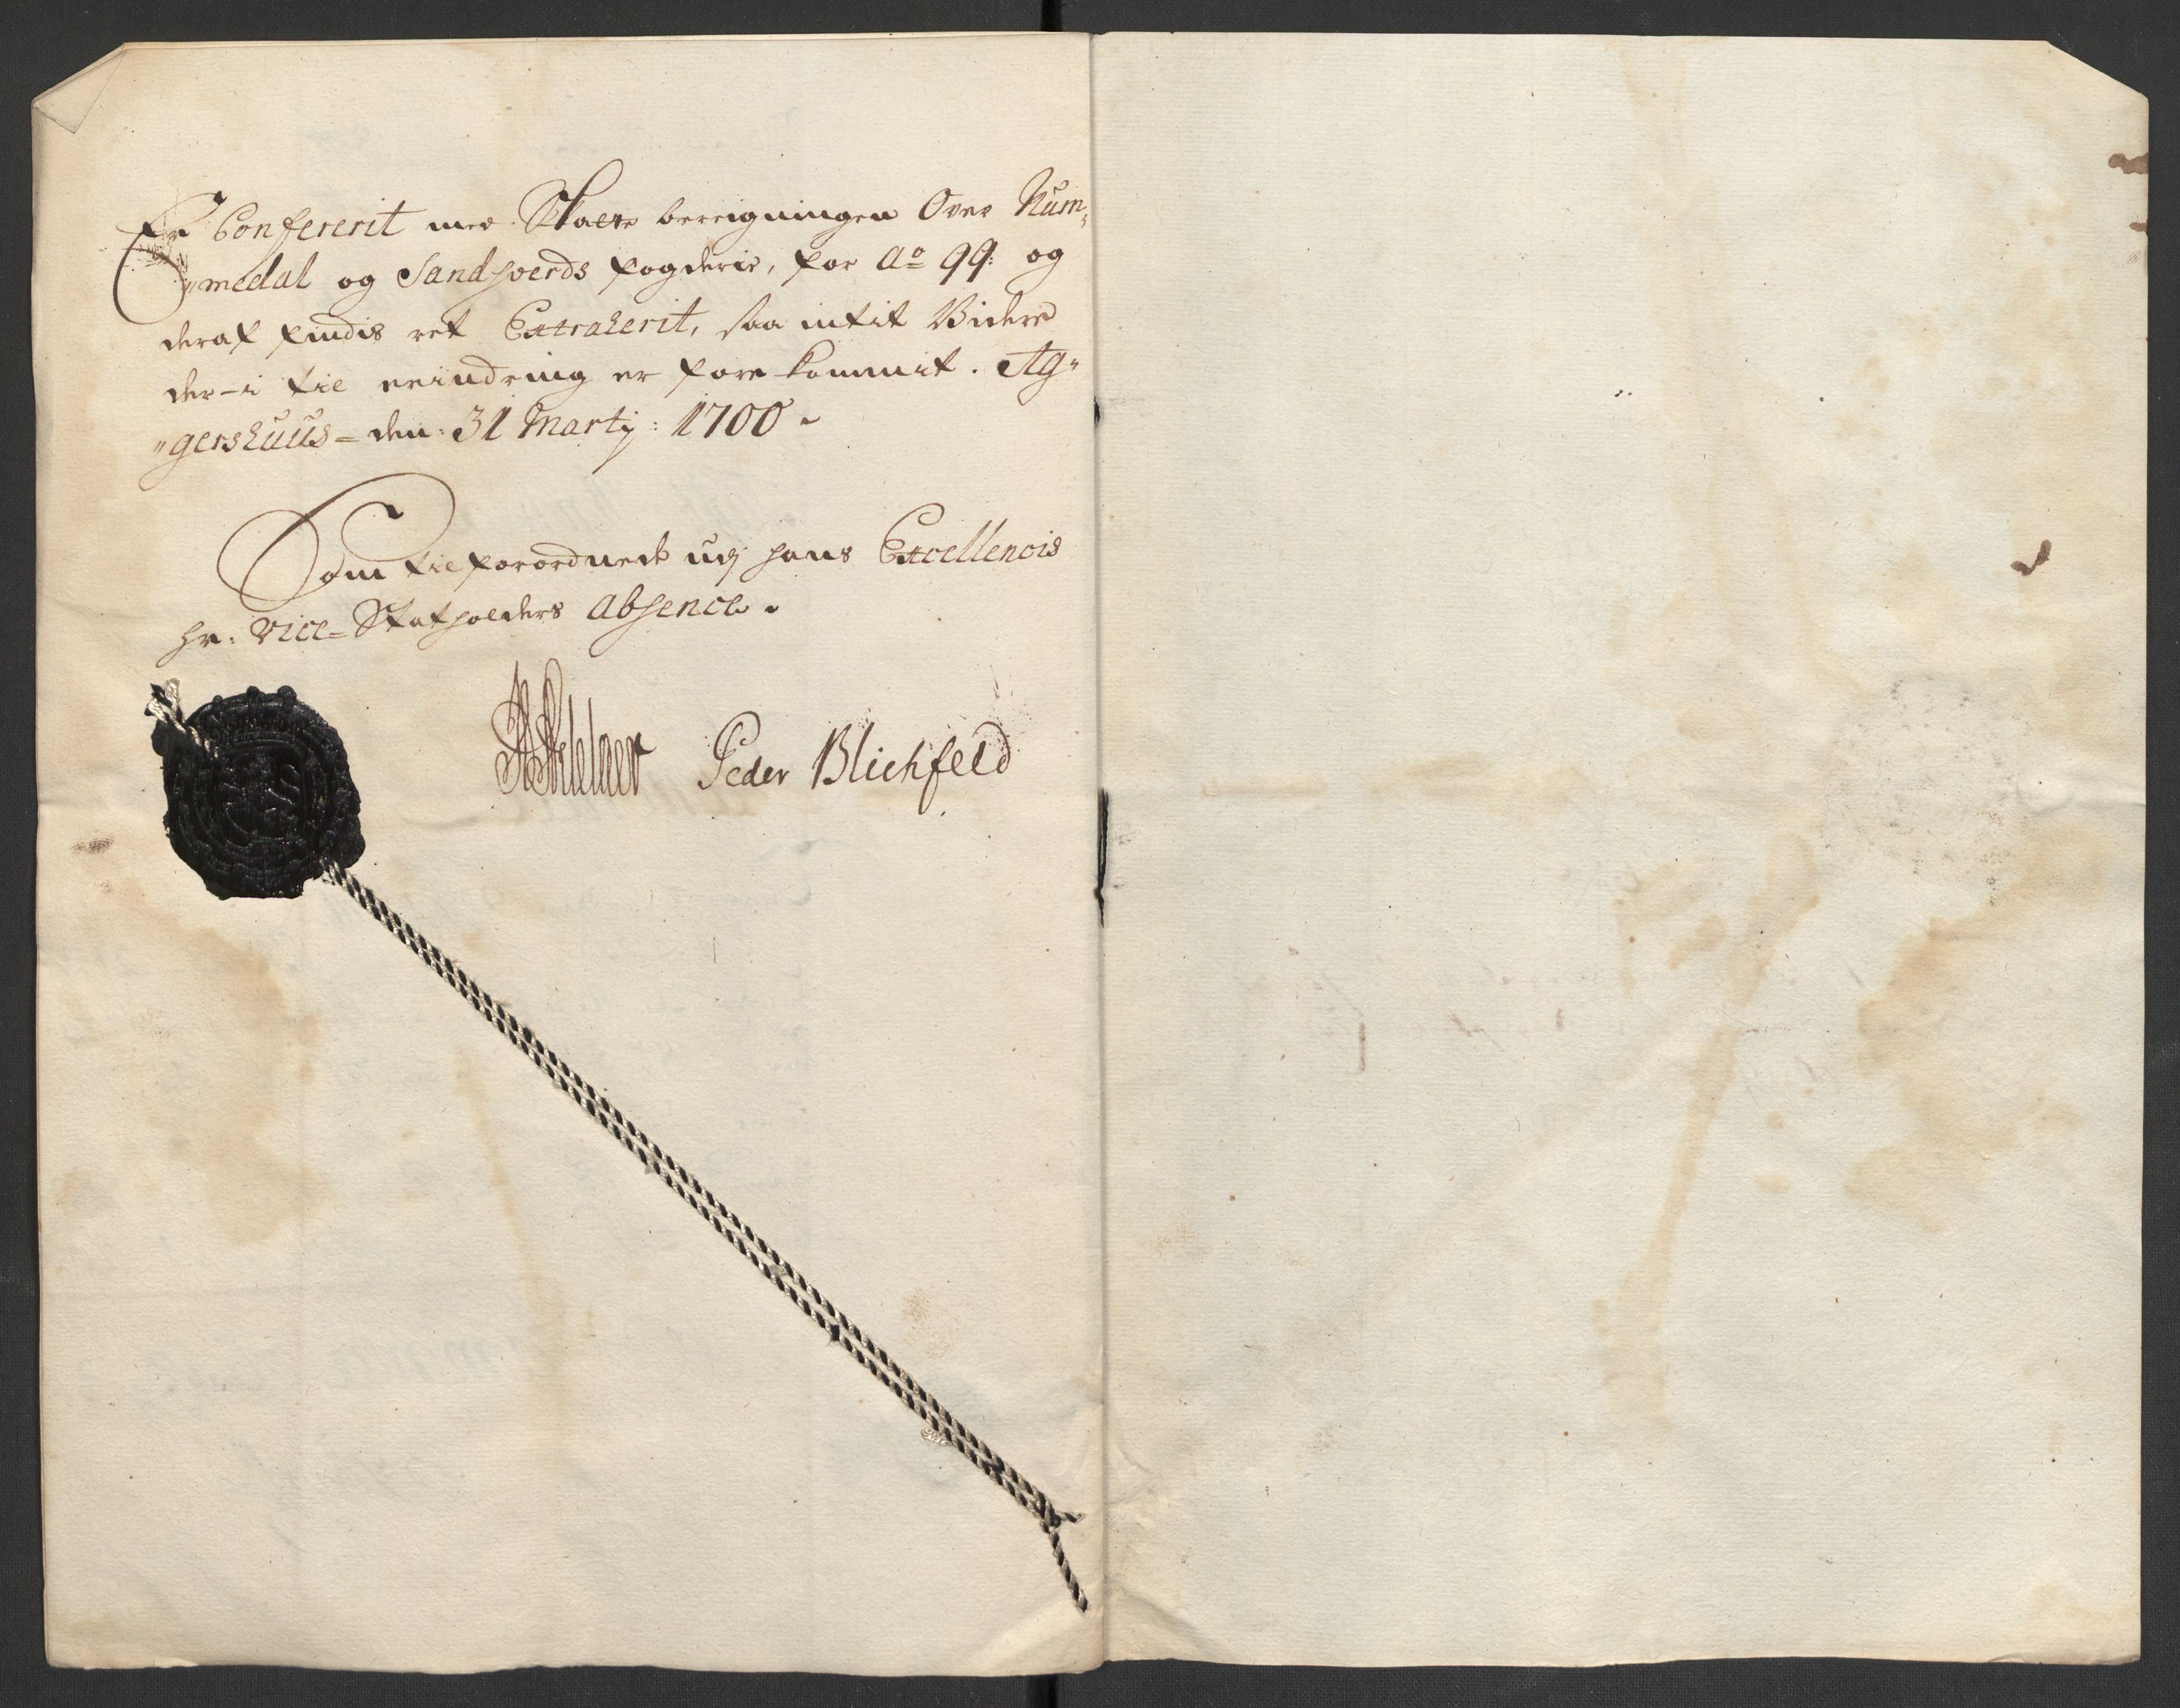 Er Confererit med Skatte beregningen Over Num„
„medal og Sandsverds fogderie, for Ao 99: og
deraf findis ret Extraherit, saa intit Videre
der-i til erindring er fore kommit. Ag„
„gershuus - den: 31 Martij: 1700.
Som tilforordnede udj hans Excellencis
hr: Vice-Statholders Absence.
Peder Blichfeld